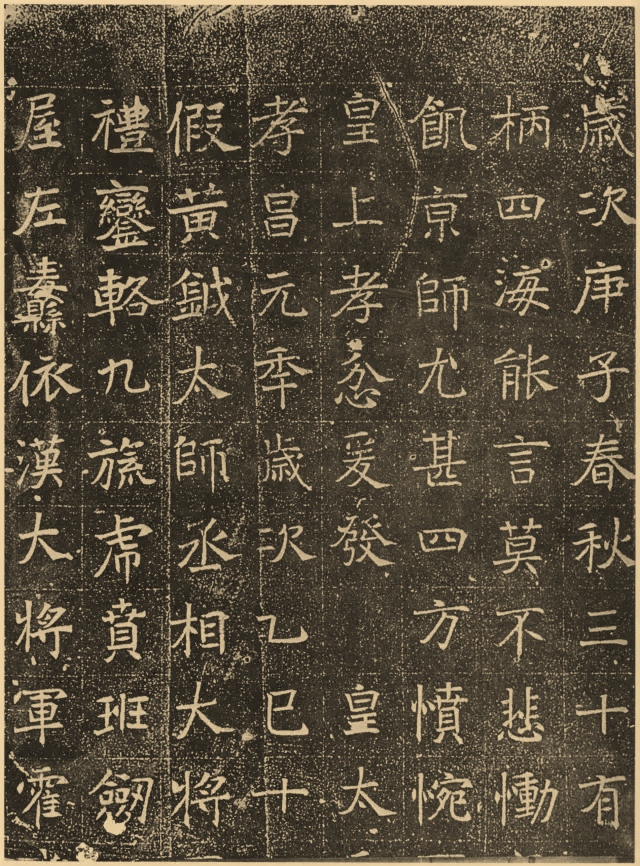 歲次庚子春秋三十有
柄四海能言莫不悲慟
飢京師尤甚四方憤惋
皇上孝忿爰發　皇太
孝昌元年歲次乙巳十
假黃鉞太師丞相大將
禮鑾輅九旒虎賁班劒
屋左纛依漢大將軍霍